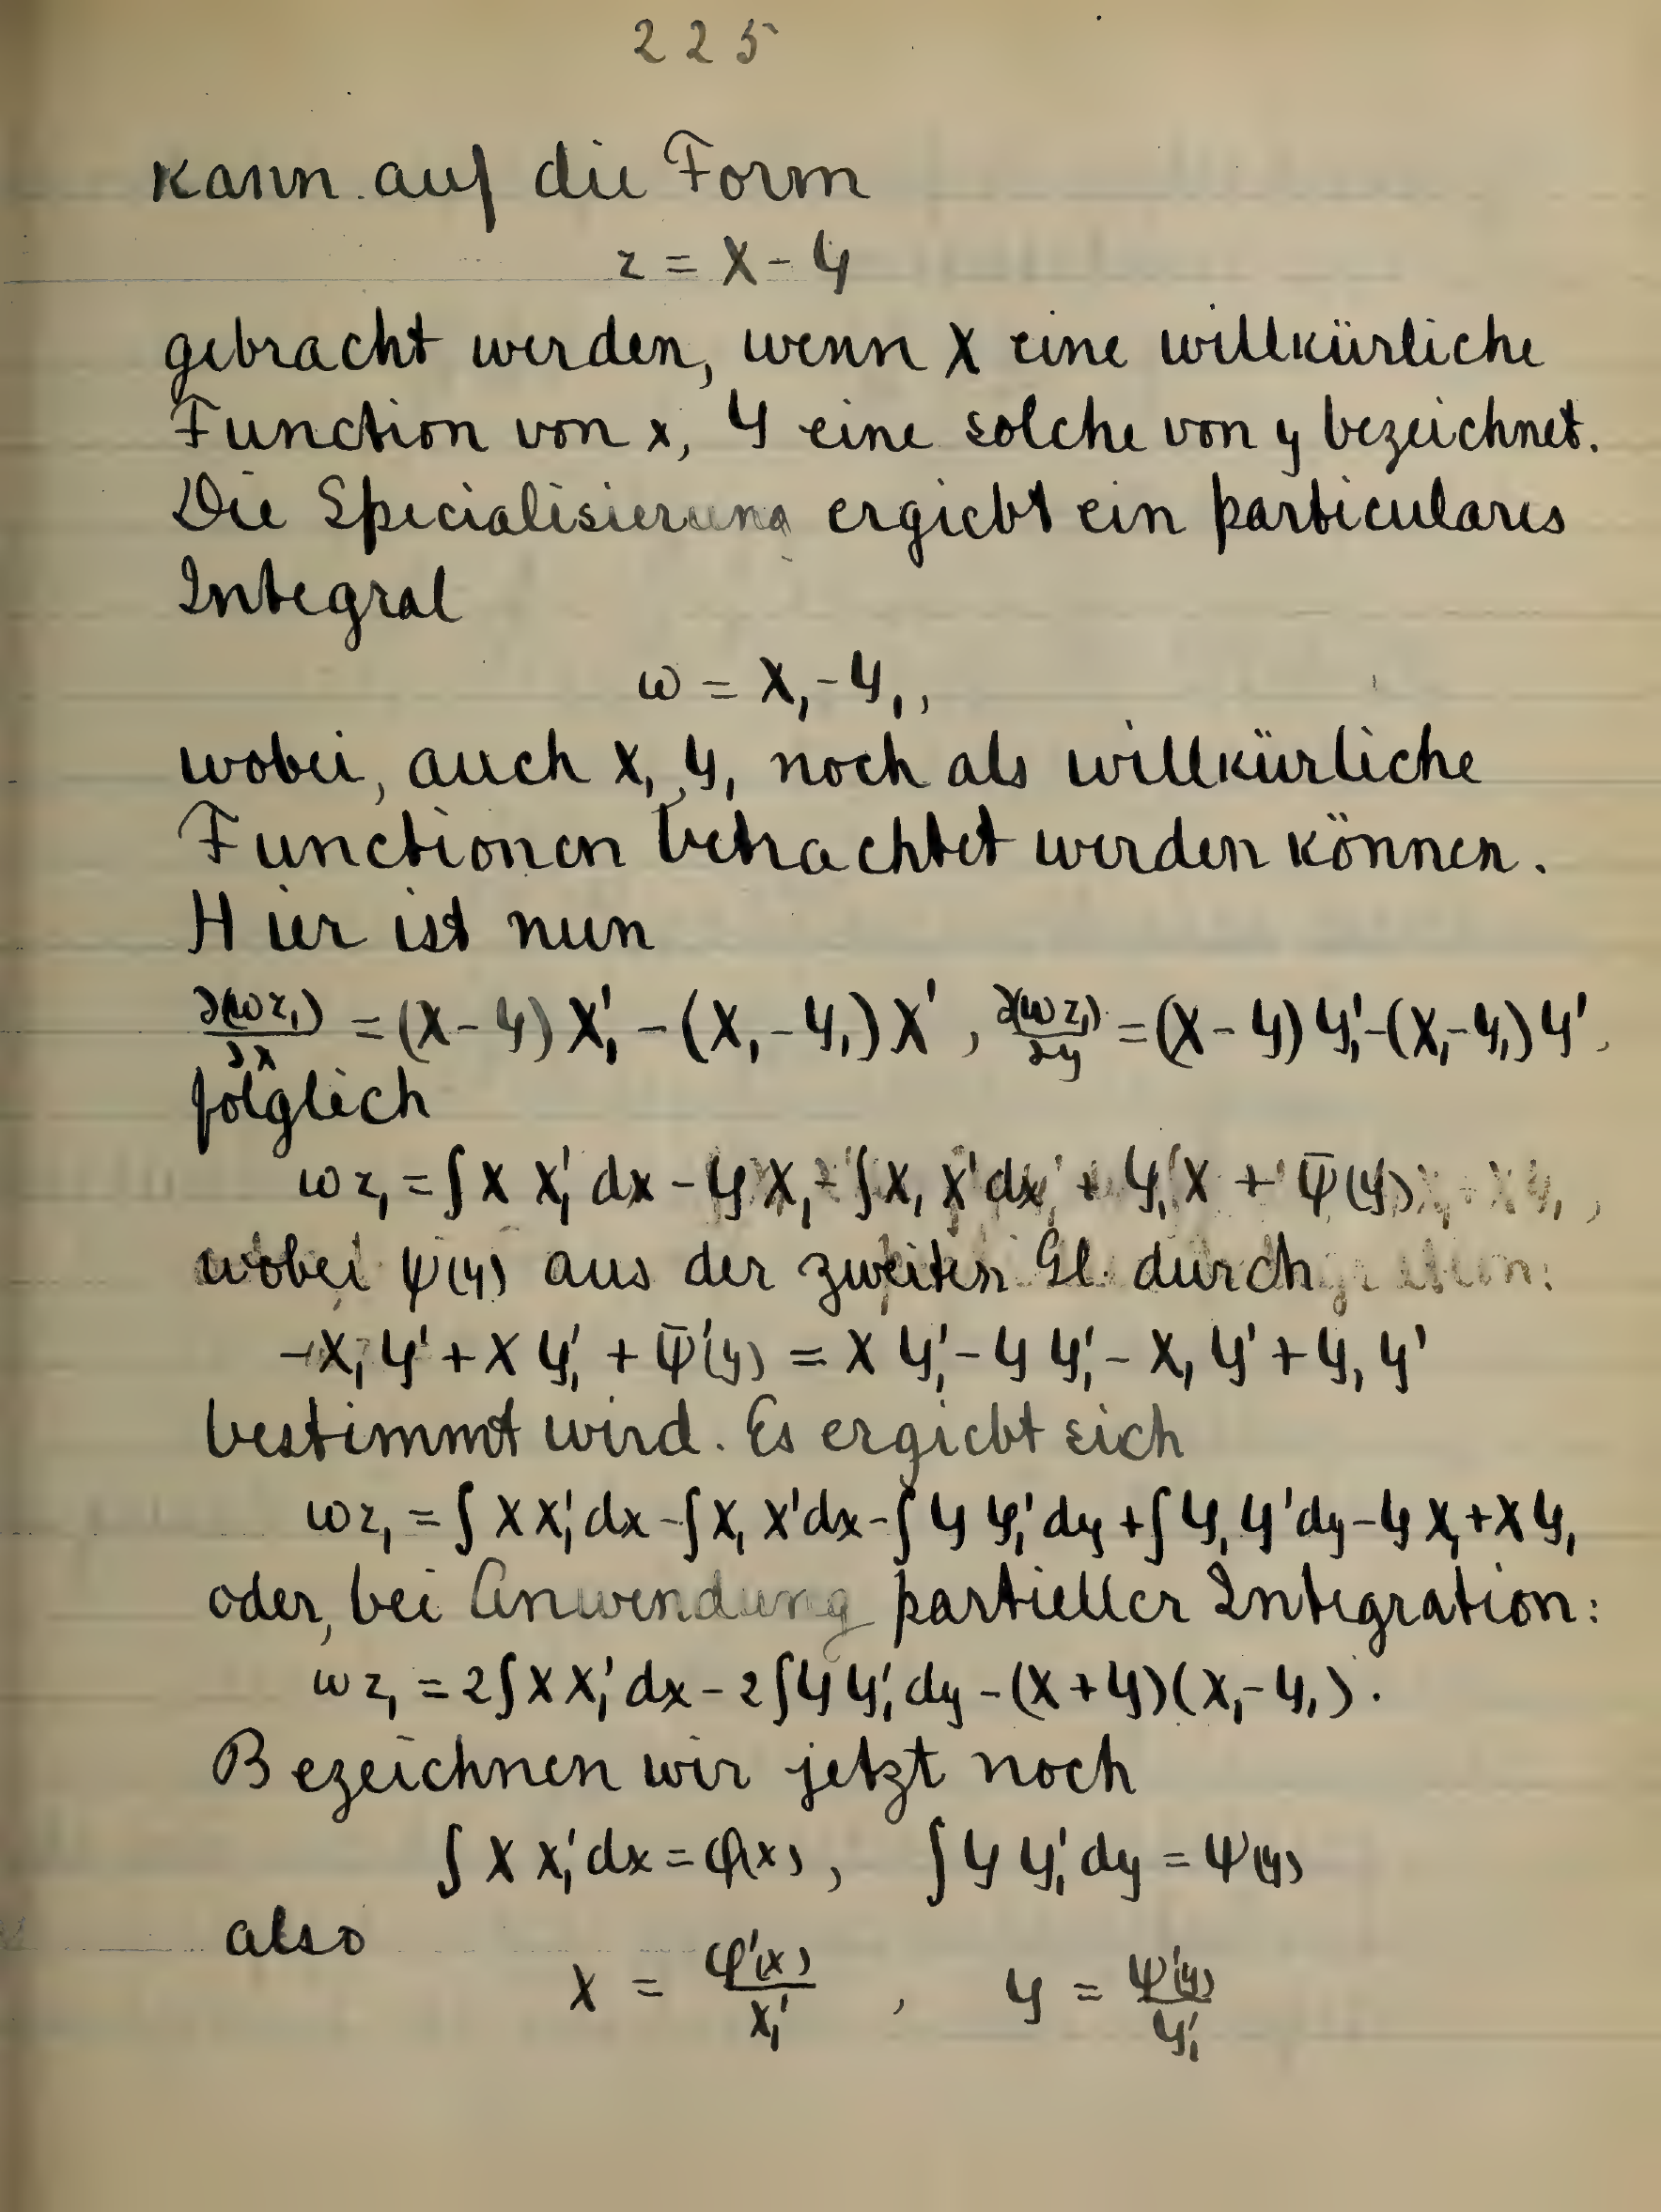 225
kann auf die Form
z = X - Y
gebracht werden, wenn X eine willkürliche
Function von x, Y eine solche von y bezeichnet.
Die Specialisierung ergiebt ein particulares
Integral
ω = X₁ - Y₁,
wobei, auch X₁, Y₁ noch als willkürliche
Functionen betrachtet werden können.
Hier ist nun
∂(ωz₁)/∂x = (X - Y) X₁' - (X₁ - Y₁) X', ∂(ωz₁)/∂y = (X - Y) Y₁' - (X₁ - Y₁) Y',
folglich
ωz₁ = ∫X X₁' dx - Y X₁ - ∫X₁ X' dx + Y₁ X + Ψ̄(y),
wobei ψ(y) aus der zweiten Gl. durch
-X₁ Y' + X Y₁' + Ψ̄'(y) = X Y₁' - Y Y₁' - X₁ Y' + Y₁ Y'
bestimmt wird. Es ergiebt sich
ωz₁ = ∫X X₁' dx - ∫X₁ X' dx - ∫Y Y₁' dy + ∫Y₁ Y' dy - Y X₁ + X Y₁
oder, bei Anwendung partieller Integration:
ωz₁ = 2∫X X₁' dx - 2∫Y Y₁' dy - (X + Y)(X₁ - Y₁).
Bezeichnen wir jetzt noch
∫X X₁' dx = φ(x), ∫Y Y₁' dy = ψ(y)
also
X = φ'(x)/X₁', Y = ψ'(y)/Y₁'